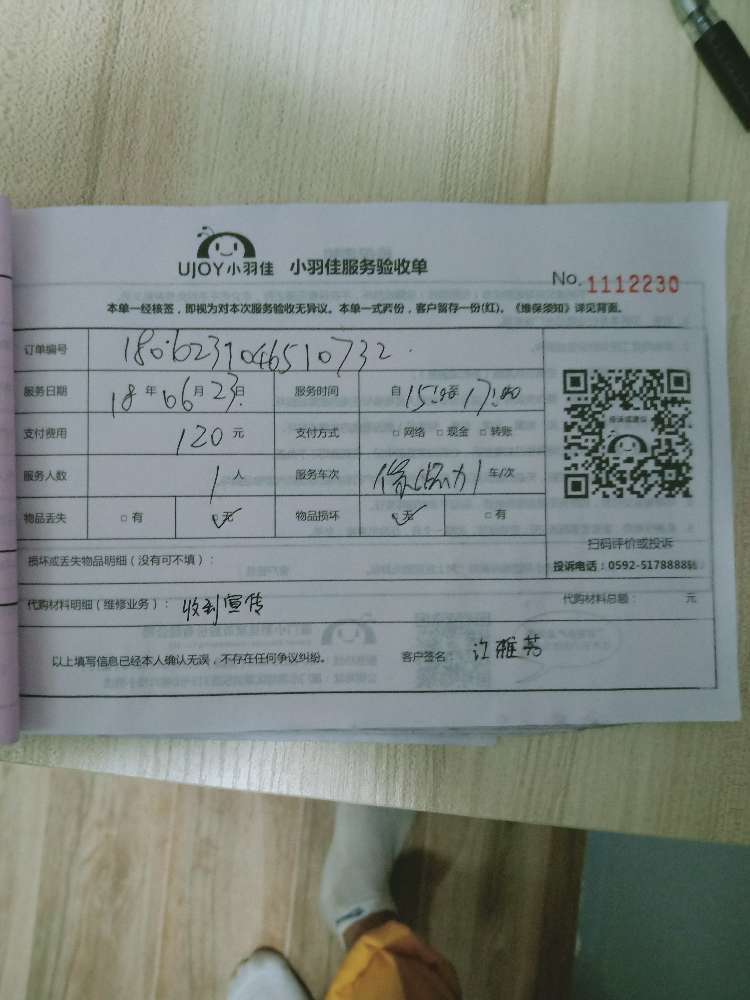 UJOY小羽佳 小羽佳服务验收单
No. 1112230
本单一经核签，即视为对本次服务验收无异议。本单一式两份，客户留存一份(红)。《维保须知》详见背面。
订单编号 180623104651 0732
服务日期 18 年 06 月 23 日 服务时间 自 15:00 至 17:00
支付费用 120 元 支付方式 □ 网络 □ 现金 □ 转账
服务人数 1 人 服务车次 1 车/次
物品丢失 □ 有 ☑ 无 物品损坏 ☑ 无 □ 有
扫码评价或投诉
损坏或丢失物品明细（没有可不填）：
投诉电话：0592-5178888转
代购材料明细（维修业务）： 收到宣传 代购材料总额： 元
以上填写信息已经本人确认无误，不存在任何争议纠纷。 客户签名： 江雅芳